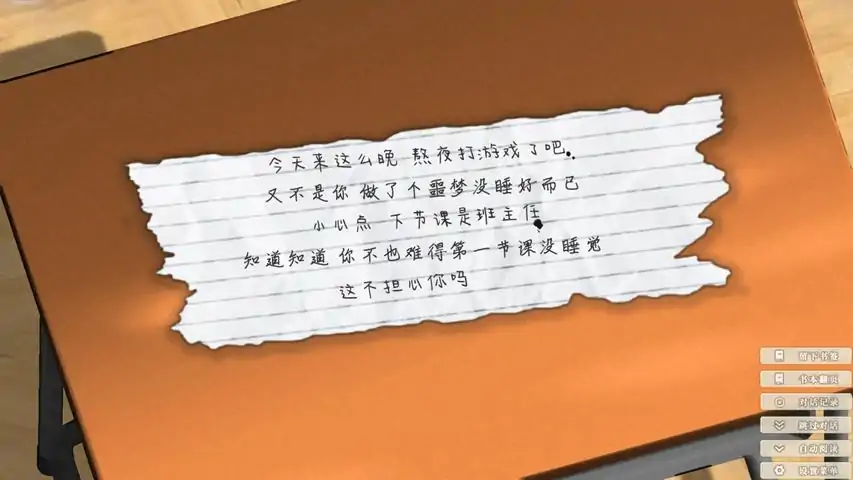 今天来这么晚 熬夜打游戏了吧..
又不是你 做了个噩梦没睡好而已
小心点 下节课是班主任
知道知道 你不也难得第一节课没睡觉
这不担心你吗
留下书签
书本翻页
对话记录
跳过对话
自动阅读
设置菜单